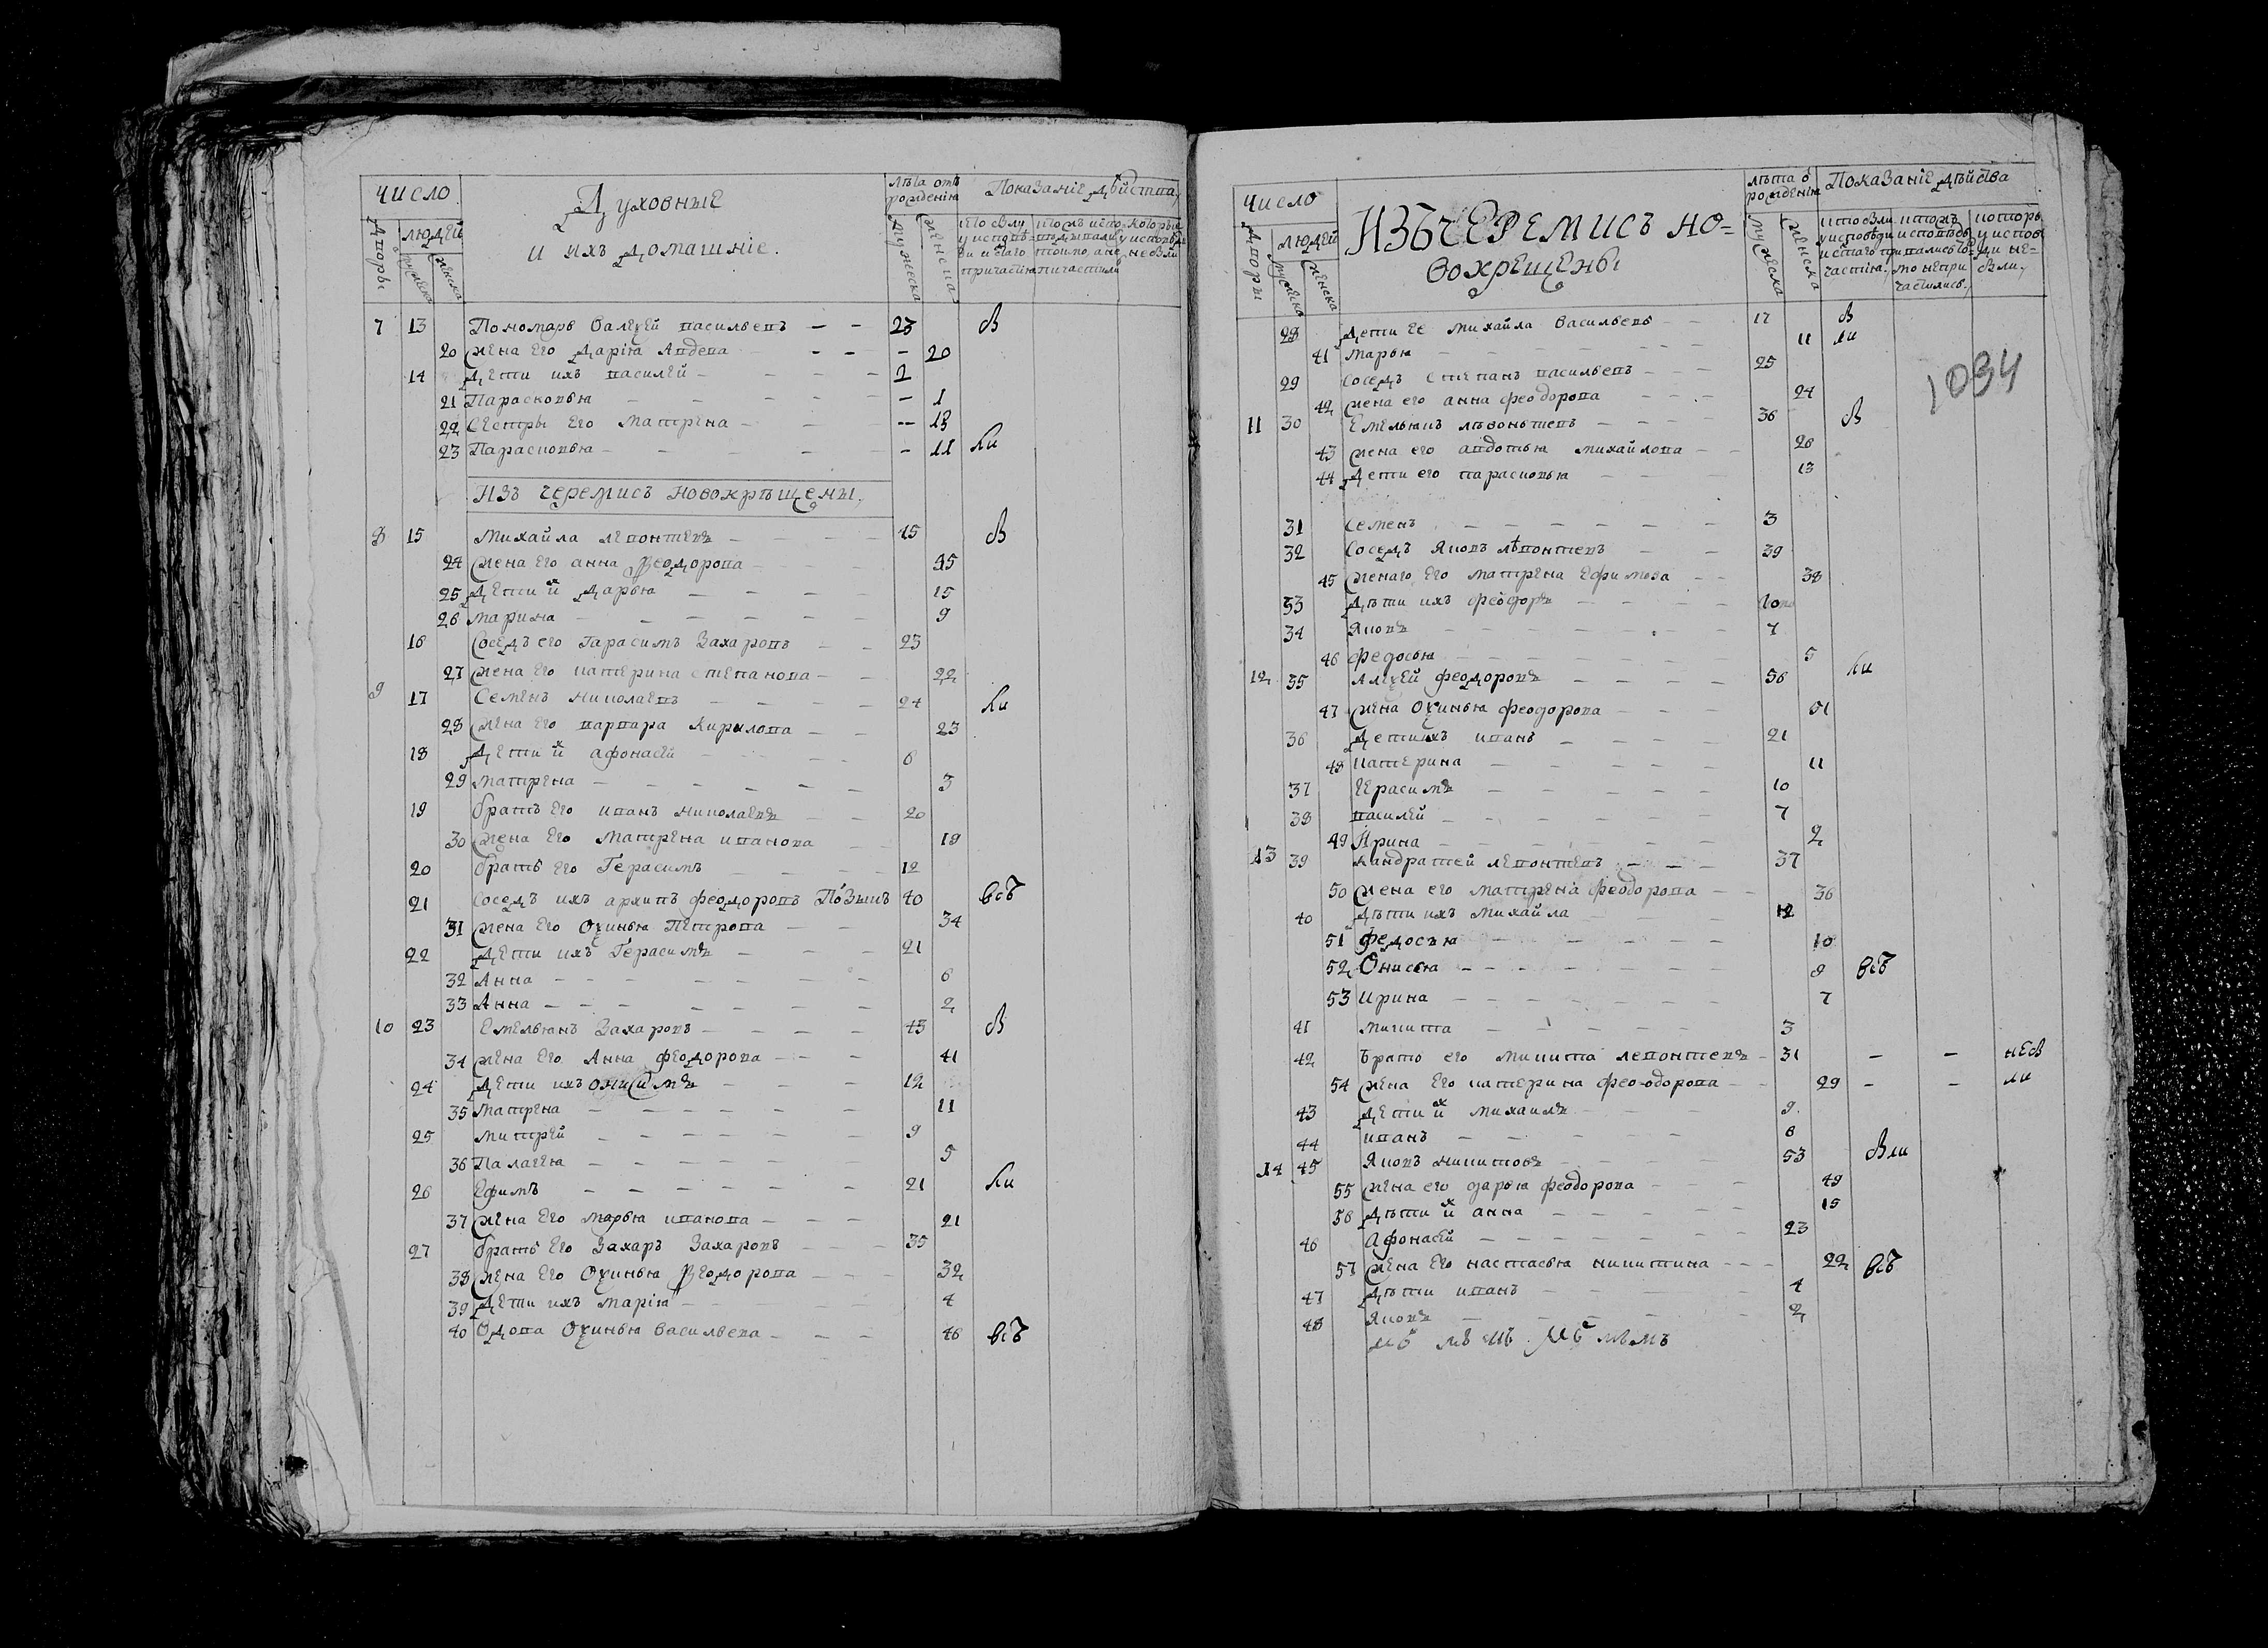 число
Духовные
и ихъ домашніе.
лѣта отъ рожденія
Показаніе дѣйства
дворы
людей
мужеска
женска
мужеска
женска
7 13 Пономарь Валеѯей васильевъ — — 23 В
20 жена его Дарія Авдева — — — 20
14 Дети ихъ василей — — 1
21 Парасковья — 1
22 Сестры его Матрена — 13
23 Парасковья — 11 ли
Изъ черемисъ новокрещены,
8 15 Михайла левонтевъ — 45 В
24 жена его анна Ѳеодорова — 45
25 Дети их дарья — 15
26 марина — 9
16 Соседъ его Гарасимъ Захаровъ — 23
27 жена его катерина степанова — 22
9 17 Семенъ николаевъ — 24 ли
28 жена его варвара Кирилова — 23
18 Дети их афонасей — 6
29 матрена — 3
19 братъ его иванъ николаевъ — 20
30 жена его матрена иванова — 19
20 братъ его Герасимъ — 12
21 соседъ ихъ архипъ феодоровъ 40 всѣ
31 жена его Оѯинья Петрова — 34
22 Дети ихъ Герасимъ — 21
32 Анна — 6
33 Анна — 2
10 23 Емельянъ Захаровъ — 43 В
34 жена его Анна феодорова — 41
24 Дети ихъ онисимъ — 12
35 матрена — 11
25 митрей — 9
36 Палагея — 5
26 Ефимъ — 21 ли
37 жена его марья иванова — 21
27 братъ его Захаръ Захаровъ — 35
38 жена его Оѯинья Ѳеодорова — 32
39 Дети ихъ марія — 4
40 Вдова Оѯинья Васильева — 46 всѣ
число
Изъ черемисъ но=
вокрещены
лѣта о рожденія
Показаніе дѣйства
дворы
людей
мужеска
женска
мужеска
женска
1034
28 Дети ее михайла васильевъ — 17 В
41 марья — 11 ли
29 соседъ степанъ васильевъ — 25
42 жена его анна феодорова — 24
11 30 Емельянъ лѣвонтевъ — 36 В
43 жена его авдотья михайлова — 26
44 Дети его парасковья — 13
31 семенъ — 3
32 Соседъ яковъ лѣвонтевъ — 39
45 женаго его матрена ефимова — 38
33 Дѣти ихъ феодоръ — 10
34 яковъ — 7
46 федосья — 5
12 35 Алеѯей феодоровъ — 56 ли
47 жена Оѯинья феодорова — 51
36 Дети ихъ иванъ — 21
48 катерина — 11
37 герасимъ — 10
38 василей — 7
49 Ирина — 2
13 39 кандратей левонтевъ — 37
50 жена его матрена феодорова — 36
40 Дѣти ихъ михайла — 12
51 федосья — 10
52 Онисья — 9 всѣ
53 ирина — 7
41 микита — 3
42 братъ его микита левонтевъ — 31 — — нев
54 жена его катерина феодорова — 29 — — ли
43 дети их михаилъ — 9
44 иванъ — 6
14 45 яковъ никитовъ — 53 Вли
55 жена его дарья феодорова — 49
56 Дѣти их анна — 15
46 Афонасей — 23
57 жена его настасья никитина — 22 всѣ
47 Дѣти иванъ — 4
48 яковъ — 2